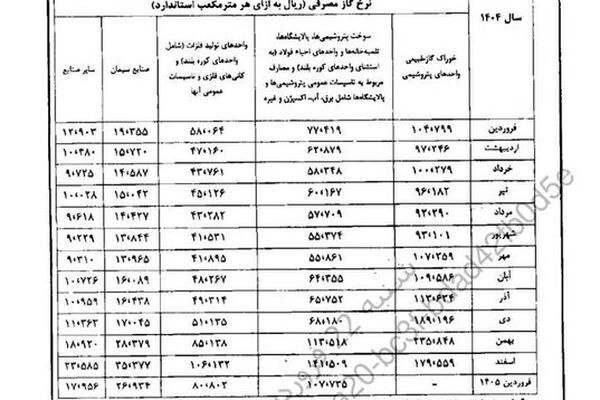 نرخ گاز مصرفی (ریال به ازای هر مترمکعب استاندارد)
سال ۱۴۰۴
خوراک گازطبیعی واحدهای پتروشیمی
سوخت پتروشیمی‌ها، پالایشگاه‌ها، تلمبه‌خانه‌ها و واحدهای احیاء فولاد (به استثنای واحدهای کوره بلند) و مصارف مربوط به تاسیسات عمومی پتروشیمی‌ها و پالایشگاه‌ها شامل برق، آب، اکسیژن و غیره
واحدهای تولید فلزات (شامل واحدهای کوره بلند) و کانی‌های فلزی و تاسیسات عمومی آنها
صنایع سیمان
سایر صنایع
فروردین ۱۰۴،۷۹۹ ۷۷،۴۱۹ ۵۸،۰۶۴ ۱۹،۳۵۵ ۱۲،۹۰۳
اردیبهشت ۹۷،۲۴۶ ۶۲،۸۷۹ ۴۷،۱۶۰ ۱۵،۷۲۰ ۱۰،۴۸۰
خرداد ۱۰۰،۲۷۹ ۵۸،۳۴۸ ۴۳،۷۶۱ ۱۴،۵۸۷ ۹،۷۲۵
تیر ۹۶،۱۸۲ ۶۰،۱۶۷ ۴۵،۱۲۶ ۱۵،۰۴۲ ۱۰،۰۲۸
مرداد ۹۲،۲۹۰ ۵۷،۷۰۹ ۴۳،۲۸۲ ۱۴،۴۲۷ ۹،۶۱۸
شهریور ۹۳،۱۰۱ ۵۵،۳۷۴ ۴۱،۵۳۱ ۱۳،۸۴۴ ۹،۲۲۹
مهر ۱۰۷،۲۵۹ ۵۵،۸۶۱ ۴۱،۸۹۵ ۱۳،۹۶۵ ۹،۳۱۰
آبان ۱۰۹،۵۸۶ ۶۴،۳۵۵ ۴۸،۲۶۷ ۱۶،۰۸۹ ۱۰،۷۲۶
آذر ۱۱۳،۶۳۴ ۶۵،۷۵۲ ۴۹،۳۱۴ ۱۶،۴۳۸ ۱۰،۹۵۹
دی ۱۸۹،۱۹۶ ۶۸،۱۸ ۵۱،۱۳۵ ۱۷،۰۴۵ ۱۱،۳۶۳
بهمن ۲۳۵،۸۴۸ ۱۱۳،۵۱۸ ۸۵،۱۳۸ ۲۸،۳۷۹ ۱۸،۹۲۰
اسفند ۱۷۹،۵۵۹ ۱۴۱،۵۰۹ ۱۰۶،۱۳۲ ۳۵،۳۷۷ ۲۳،۵۸۵
فروردین ۱۴۰۵ - ۱۰۷،۷۳۵ ۸۰،۸۰۲ ۲۶،۹۳۴ ۱۷،۹۵۶